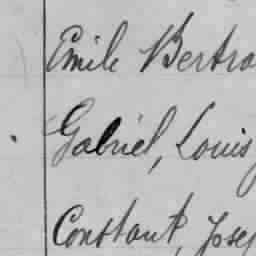 Emile Bertra
Gabriel, Louis
Constant, Jose